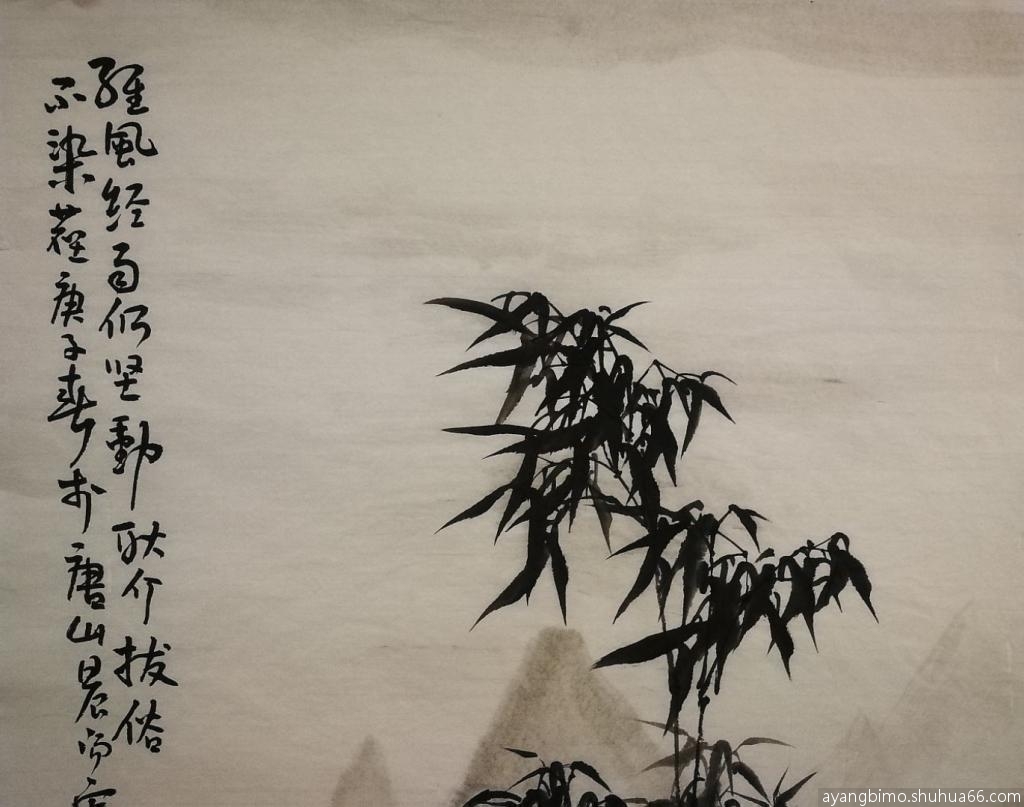 經風经雨仍坚勁耿介拔俗
不染庚子春於唐山晨
ayangbimo.shuhua66.com